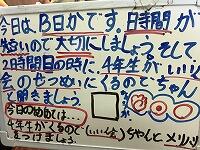 今日は、B日かです。日時間が
短いので大切にしましょう。そして
2時間目の時に、4年生がいいリ
会のせつめいにくるのでちゃん
で聞きましょう。
今日のめあては…
4年生がくるので(いいなら)ちゃんとメリハリ
をつけましょう。